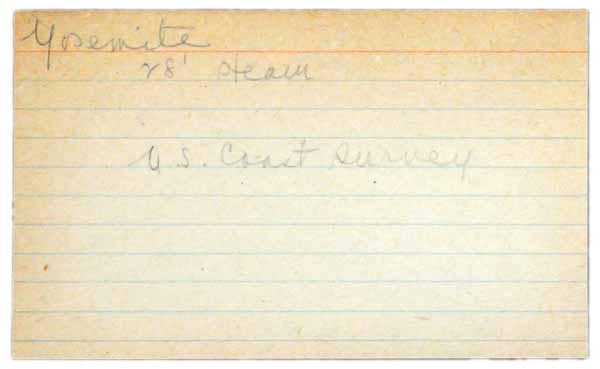 Yosemite
28' steam
U.S. Coast Survey